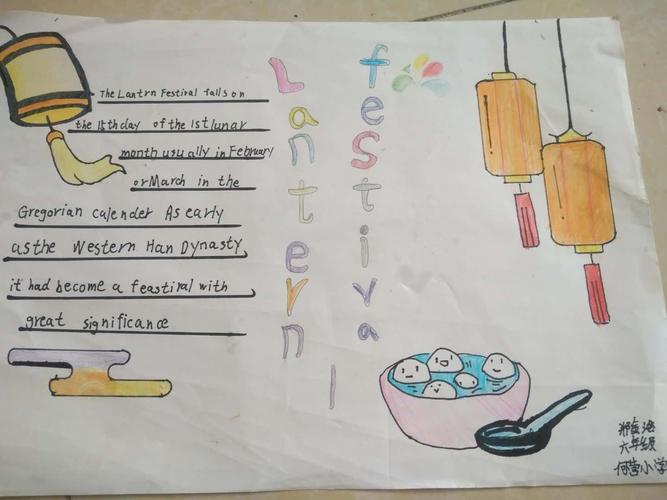 The Lantrn Festival falls on
the 15th day of the 1st lunar
month usually in February
or March in the
Gregorian calender As early
as the Western Han Dynasty
it had become a feastiral with
great significance
Lantern
festival
六年级
何营小学